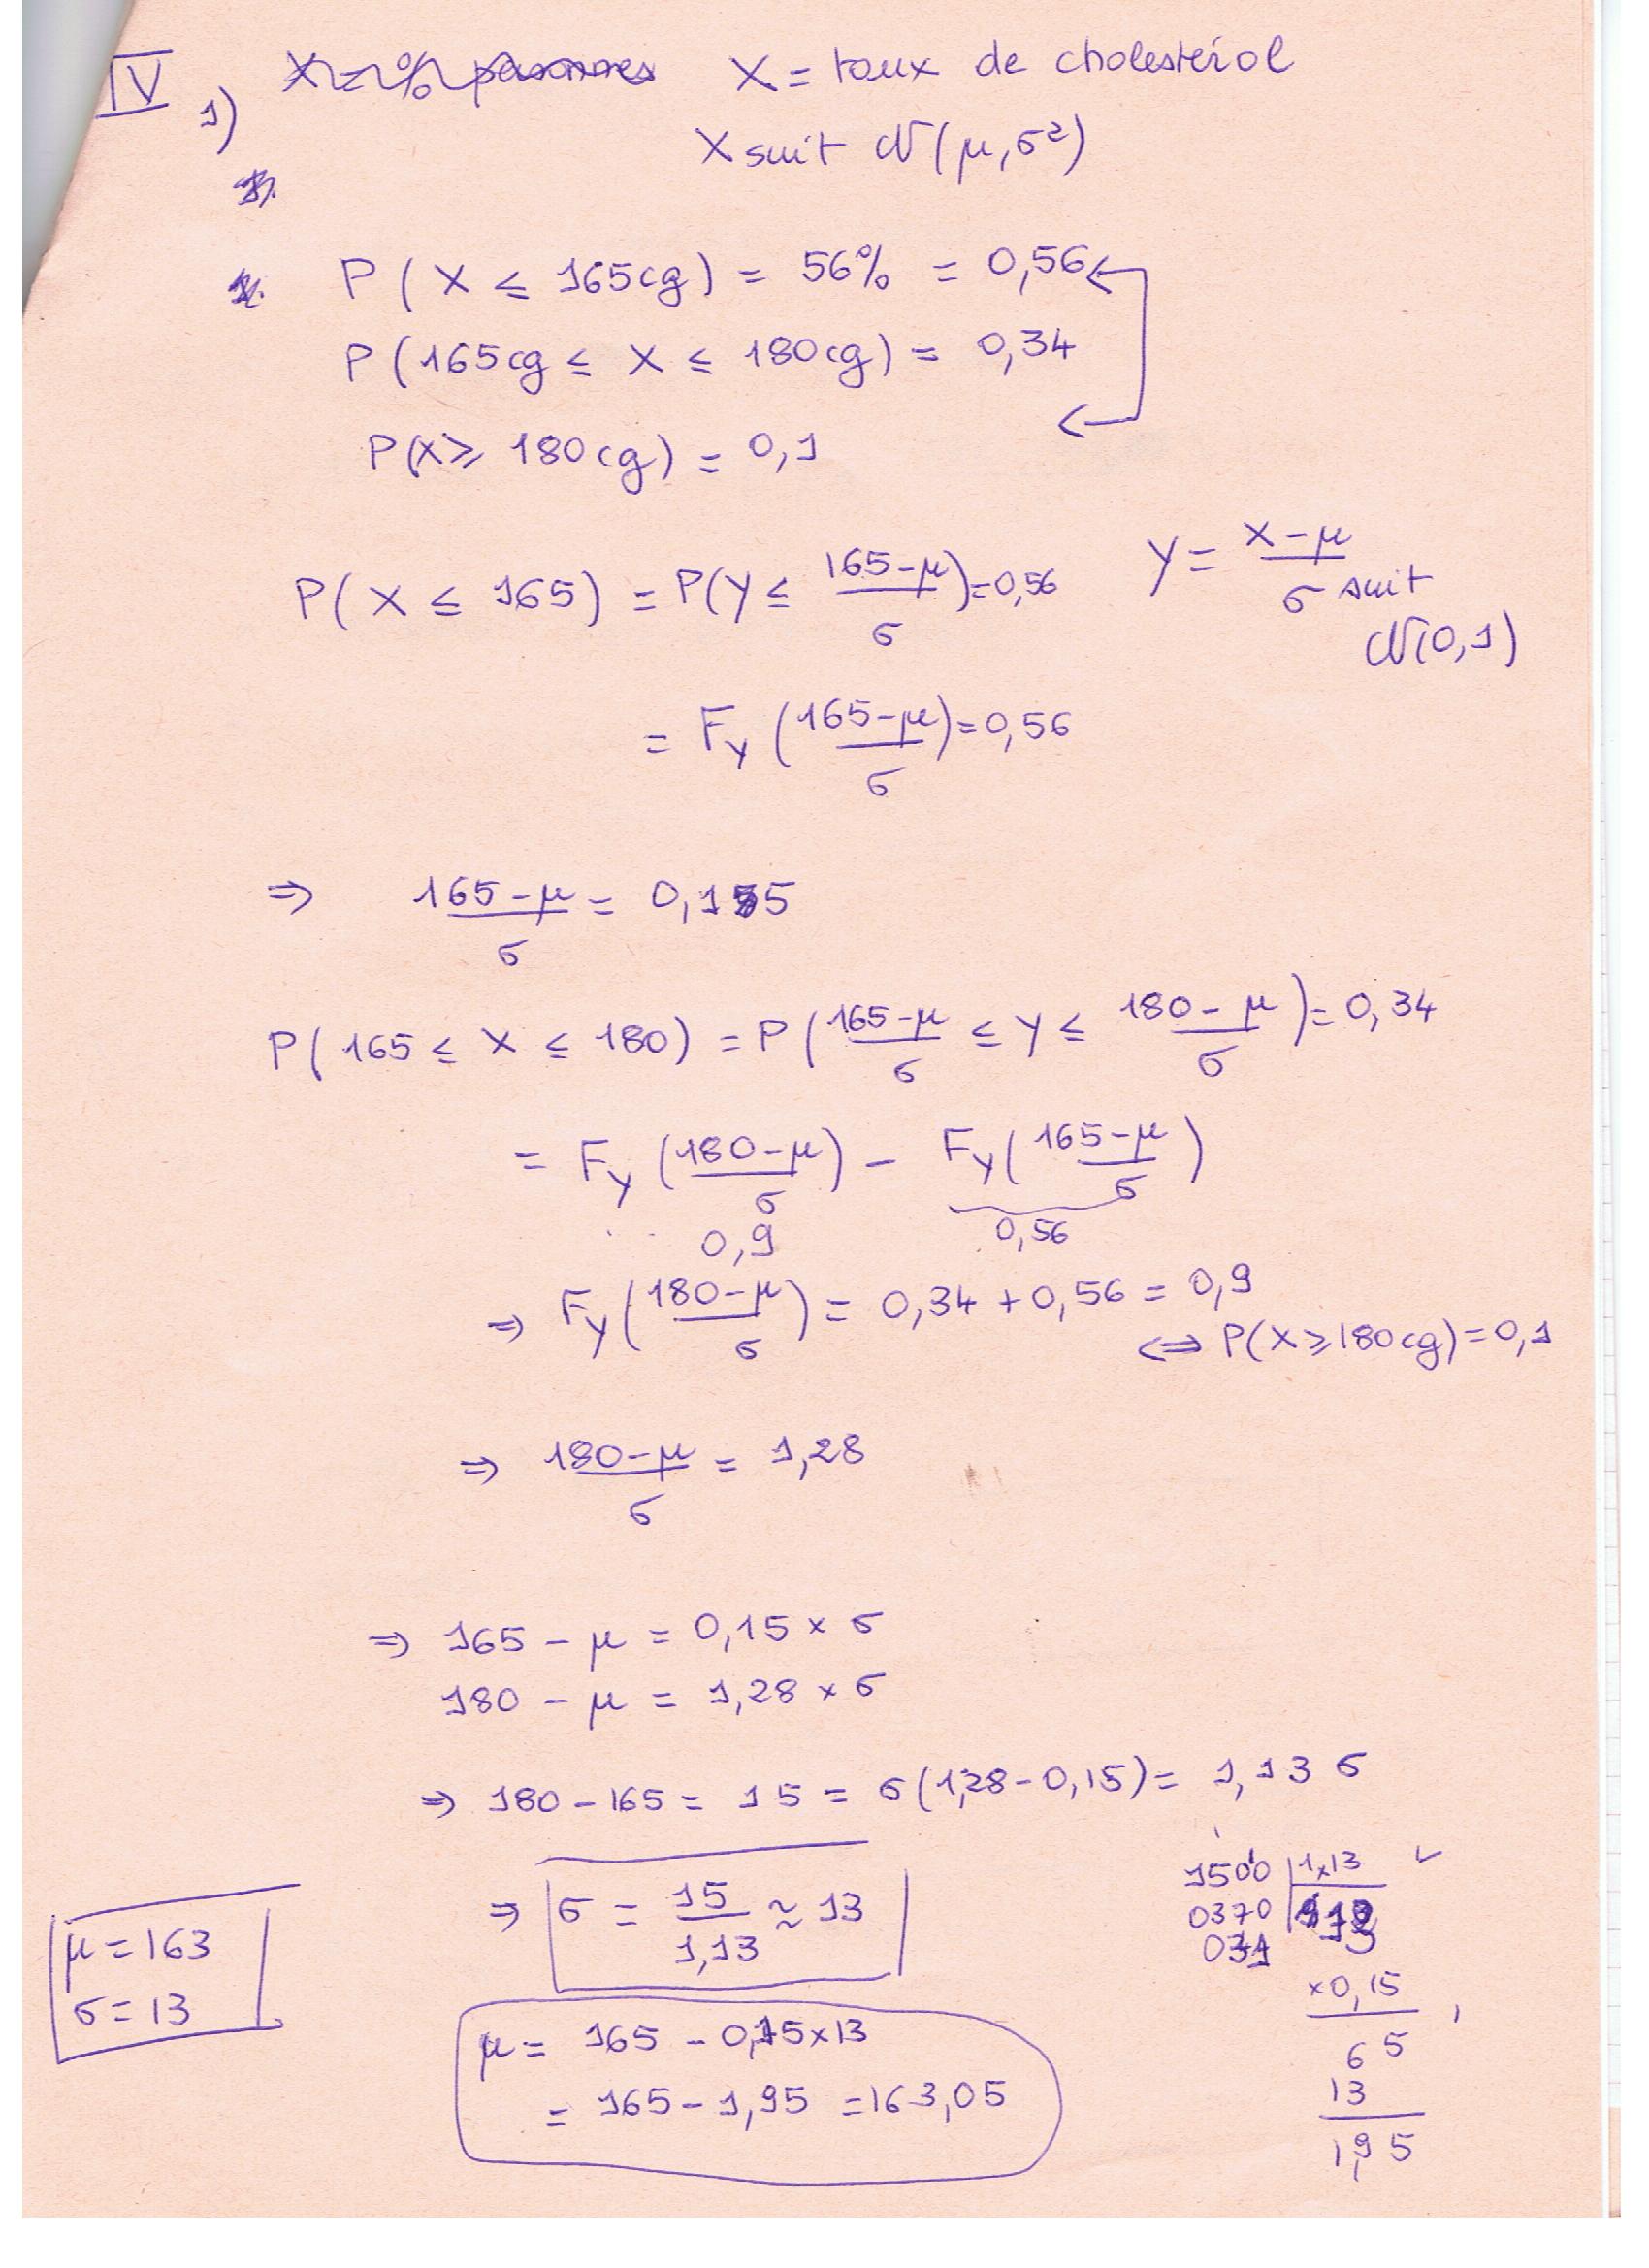 IV 1) X = taux de cholestérol
X suit N(μ, σ²)
P(X ≤ 165cg) = 56% = 0,56
P(165cg ≤ X ≤ 180cg) = 0,34
P(X ≥ 180cg) = 0,1
P(X ≤ 165) = P(Y ≤ (165-μ)/σ) = 0,56 Y = (X-μ)/σ suit N(0,1)
= F_Y((165-μ)/σ) = 0,56
⇒ (165-μ)/σ = 0,15
P(165 ≤ X ≤ 180) = P((165-μ)/σ ≤ Y ≤ (180-μ)/σ) = 0,34
= F_Y((180-μ)/σ) - F_Y((165-μ)/σ)
0,9 0,56
⇒ F_Y((180-μ)/σ) = 0,34 + 0,56 = 0,9
⇔ P(X ≥ 180cg) = 0,1
⇒ (180-μ)/σ = 1,28
⇒ 165 - μ = 0,15 × σ
180 - μ = 1,28 × σ
⇒ 180 - 165 = 15 = σ(1,28 - 0,15) = 1,13 σ
⇒ σ = 15/1,13 ≈ 13
μ = 165 - 0,15 × 13
= 165 - 1,95 = 163,05
μ = 163
σ = 13
1500 1,13
0370
13
× 0,15
65
13
1,95